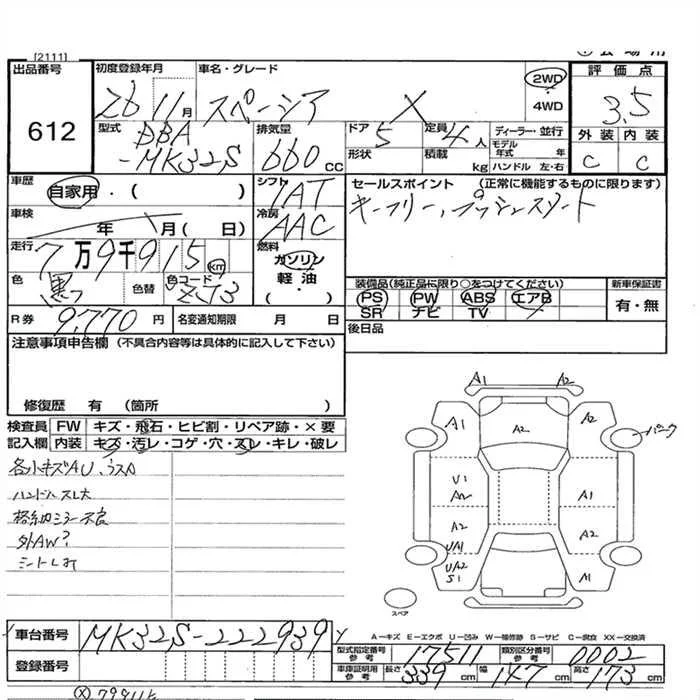 [2111]
出品番号
612
初度登録年月
26 11月
車名・グレード
スペーシア X
2WD
・4WD
評価点
3.5
外装 内装
C C
型式
DBA
-MK32S
排気量
660 CC
ドア 5
形状
定員 4人
積載 kg
ディーラー・並行
モデル年式 年
ハンドル 左・右
車歴
自家用・( )
シフト
IAT
セールスポイント (正常に機能するものに限ります)
キーフリー、プッシュスタート
車検
年 月( 日)
冷房
AAC
走行
7万9千915km
燃料
ガソリン
軽油・
( )
色
黒
色替
色コード
ZJ3
装備品(純正品に限り○をつけてください)
PS PW ABS エアB
SR ナビ TV
新車保証書
有・無
R券 9,770円
名変通知期限 月 日
後日品
注意事項申告欄 (不具合内容等は具体的に記入して下さい)
修復歴 有 (箇所 )
検査員 FW キズ・飛石・ヒビ割・リペア跡・×要
記入欄 内装 キズ・汚レ・コゲ・穴・スレ・キレ・破レ
各小キズAU、ウスA
ハンドルスレ大
格納ミラー不良
外AW?
A1 A2
A1 A2 A2
パンク
U1 A1
A2
A2 A2
U/A1
U/A2 A1
S1
スペア
A－キズ E－エクボ U－凹み W－補修跡 S－サビ C－腐食 XX－交換済
車台番号 MK32S-222939
登録番号
型式指定番号 参考 17511
類別区分番号 参考 0002
車庫証明用 参考 長さ 339cm 幅 147cm 高さ 173cm